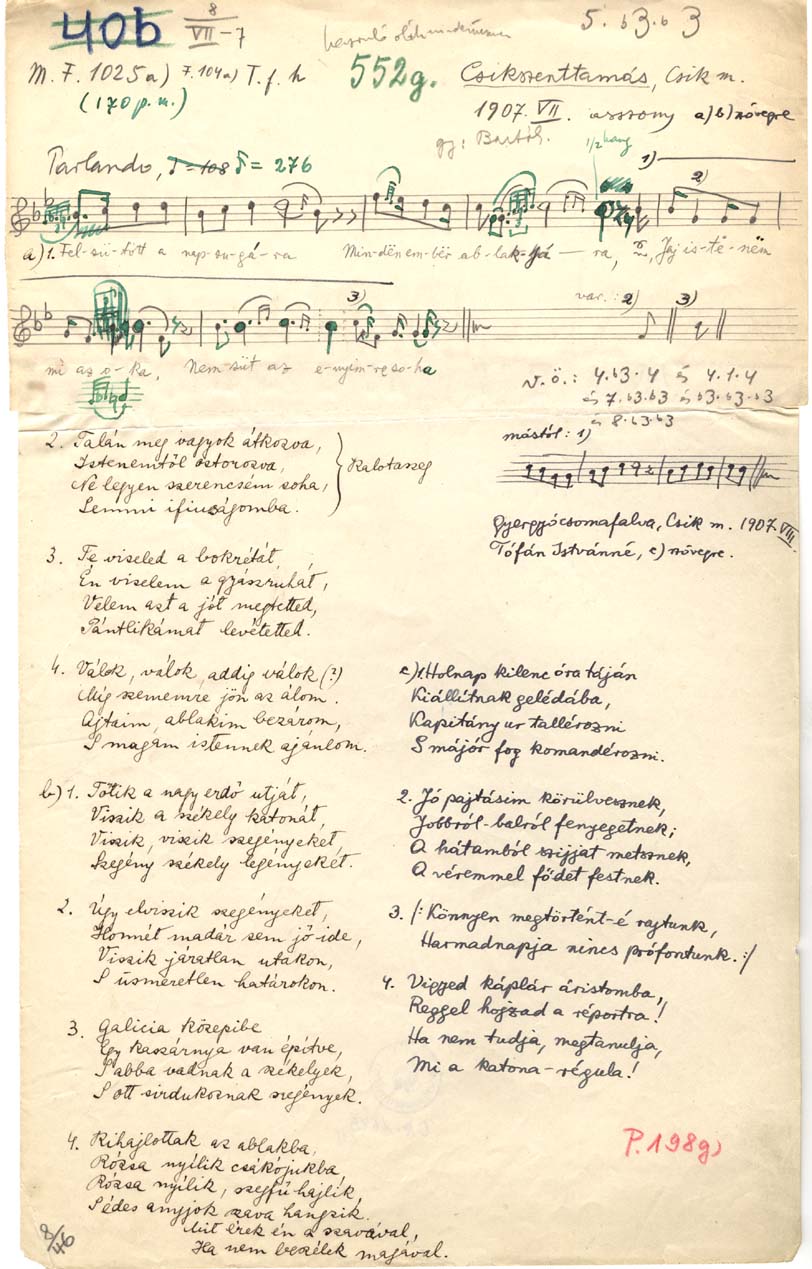 40b 8 VII-7 5. b3. b 3
M. F. 1025a) F. 104a) T. f. h 552g. Csikszenttamás, Csik m.
(170 p. m.) 1907. VII. asszony a) b) szövegre
gy: Bartók.
1/2 hang
Parlando, ♪=108 ♪= 276 1)
2)
a) 1. Fel-sü-tött a nap-su-gá-ra Min-dën em-bër ab-lak-já-ra, Jaj is-te-nëm
3) var.: 2) 3)
mi az o-ka, Nem süt az e-nyim-re so-ha
v. ö.: 4. b3. 4 és 4. 1. 4
és 7. b3. b3 és b3. b3. b3
és 8. b3. b3
2. Talán meg vagyok átkozva,
Istenemtől ostorozva,
Ne legyen szerencsém soha,
Semmi ifiuságomba.
Kalotaszeg
mástól: 1)
Gyergyócsomafalva, Csik m. 1907. VIII.
Tófán Istvánné, c) szövegre.
3. Te viseled a bokrétát,
Én viselem a gyászruhát,
Velem azt a jót megtetted,
Pántlikámat levétetted.
4. Válok, válok, addig válok (?)
Míg szememre jön az álom.
Ajtaim, ablakim bezárom,
S magam istennek ajánlom.
b) 1. Tőtik a nagy erdő utját,
Viszik a székely katonát,
Viszik, viszik szegényeket,
Szegény székely legényeket.
2. Úgy elviszik szegényeket,
Honnét madár sem jő ide,
Viszik járatlan utakon,
S üsmeretlen határokon.
3. Galicia közepibe
Egy kaszárnya van építve,
S abba vadnak a székelyek,
S ott sirdukoznak szegények.
4. Kihajlottak az ablakba,
Rózsa nyílik csákójukba,
Rózsa nyílik, szegfű hajlik,
Sédes anyjok szava hangzik.
Mit érek én a szavával,
Ha nem beszélek magával.
c) 1. Holnap kilenc óra táján
Kiállítnak gelédába,
Kapitány ur tallérozni
S májór fog komandérozni.
2. Jó pajtásim körülvesznek,
Jobbról-balról fenyegetnek;
A hátamból szijjat metsznek,
A véremmel fődet festnek.
3. /: Könnyen megtörtént-é rajtunk,
Harmadnapja nincs prófontunk. :/
4. Vigyed káplár áristomba,
Reggel hojzad a réportra!
Ha nem tudja, megtanulja,
Mi a katona-régula!
P. 198g)
8/46